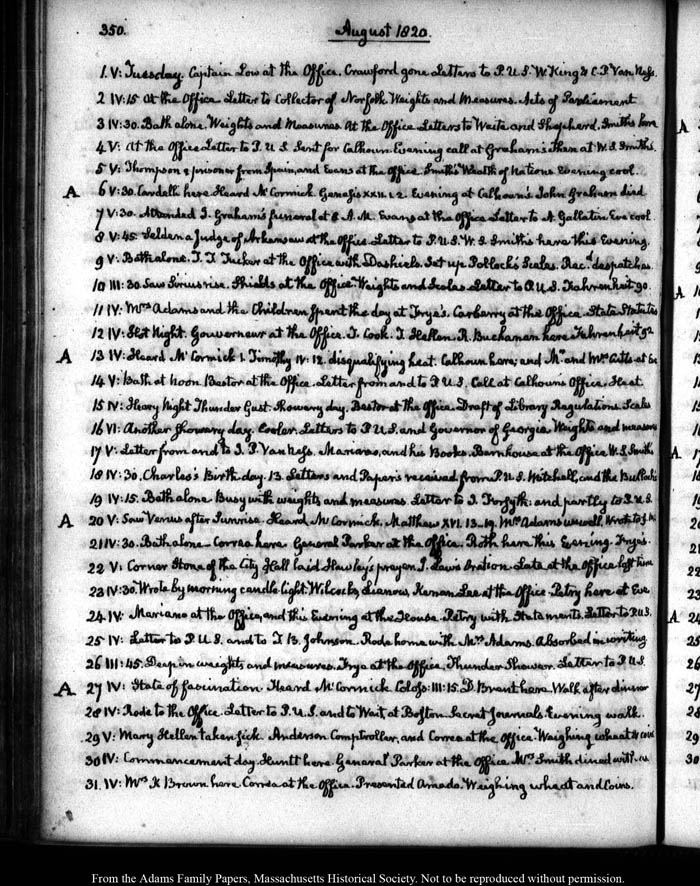 350.
August 1820.
1. V: Tuesday. Captain Low at the Office. Crawford gone Letters to P.U.S. W. King & C.P. Van Ness.
2 IV:15 At the Office Letter to Collector of Norfolk. Weights and Measures. Acts of Parliament
3 IV:30. Bath alone. Weights and Measures At the Office Letters to Waite and Shepherd. Smiths here
4 V: At the Office Letter to P.U.S Sent for Calhoun Evening call at Graham's then at W.S. Smith's.
5 V: Thompson a prisoner from Spain, and Evans at the Office. Smith's Wealth of Nations. Evening cool.
A 6 V:30. Cardelli here Heard McCormick. Genesis XXII. 1. 2. Evening at Calhoun's John Graham died
7 V:30. Attended J. Graham's funeral at 8 A.M. Evans at the Office Letter to A. Gallatin. Eve cool
8 V:45. Selden a Judge of Arkansaw at the Office. Letter to P.U.S. W.S. Smith's here this Evening.
9 V: Bath alone. T. T. Tucker at the Office with Dashiels. Set up Pollock's Scales. Recd despatches.
10 III:30 Saw Sirius rise. Shields at the Office Weights and Scales. Letter to P.U.S. Fahrenheit 90.
11 IV: Mrs Adams and the Children spent the day at Frye's. Carberry at the Office. State Statutes
12 IV: Hot Night. Gouverneur at the Office. J. Cook. J. Hellen. R. Buchanan here Fahrenheit 92
A 13 IV: Heard McCormick 1. Timothy IV:12. disqualifying heat. Calhoun here; and Mr and Mrs Cutts at Eve
14 V: Bath at Noon. Bestor at the Office. Letter from and to P.U.S. Call at Calhouns Office. Heat.
15 IV: Heavy Night Thunder Gust. Showery day. Bestor at the Office. Draft of Library Regulations. Scales
16 VI: Another showery day. Cooler. Letters to P.U.S. and Governor of Georgia. Weights and measures
17 V: Letter from and to J. P. Van Ness. Mariano, and his Books. Barnhouse at the Office W.S. Smiths
18 IV:30. Charles's Birth day. 13. Letters and Papers received from P.U.S. Mitchell, and the
19 IV:15. Bath alone Busy with weights and measures. Letter to J. Forsyth: and partly to P.U.S.
A 20 V: Saw Venus after Sunrise. Heard McCormick. Matthew XVI. 13-19. Mrs Adams unwell. Wrote to
21 IV:30. Bath alone - Correa here General Parker at the Office. Roth here this Evening. Fryes.
22 V: Corner Stone of the City Hall laid Hawley's prayer. J. Law's Oration. Late at the Office
23 IV:30. Wrote by morning candle light. Wilcocks, Lee at the Office. Petry here at Eve
24. IV: Mariano at the Office, and this Evening at the House. Petry with Statements. Letter to P.U.S.
25 IV: Letter to P.U.S. and to T. B. Johnson. Rode home with Mrs Adams. Absorbed in writing
26 III:45. Deep in weights and measures. Frye at the Office. Thunder Shower. Letter to P.U.S.
A 27 IV: State of fascination Heard McCormick. Coloss: III:15. D. Brent here. Walk after dinner
28 IV: Rode to the Office. Letter to P.U.S. and to Wait at Boston. Secret Journals. Evening walk.
29 V: Mary Hellen taken sick. Anderson Comptroller, and Correa at the Office. Weighing wheat & coins
30 IV: Commencement day. Huntt here. General Parker at the Office. Mrs Smith dined with us
31. IV: Mrs K Brown here. Correa at the Office. Presented Amado. Weighing wheat and Coins.
From the Adams Family Papers, Massachusetts Historical Society. Not to be reproduced without permission.